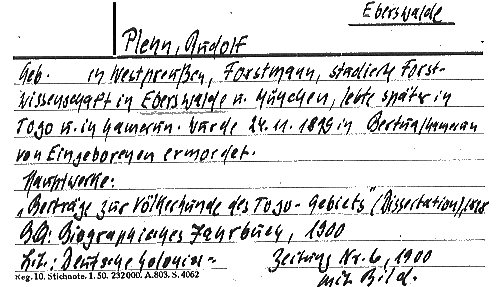 Eberswalde
Plehn, Rudolf
Geb. in Westpreußen, Forstmann, studierte Forst-
wissenschaft in Eberswalde u. München, lebte später in
Togo u. in Kamerun. Wurde 24.11.1899 in Bertua/Kamerun
von Eingeborenen ermordet.
Hauptwerke:
„Beiträge zur Völkerkunde des Togo-Gebiets" (Dissertation), 1898
BQ: Biographisches Jahrbuch, 1900
Lit.: Deutsche Kolonial- Zeitung Nr. 6, 1900
mit Bild.
Reg. 10. Stichnote. 1. 50. 232000. A. 803. S. 4062